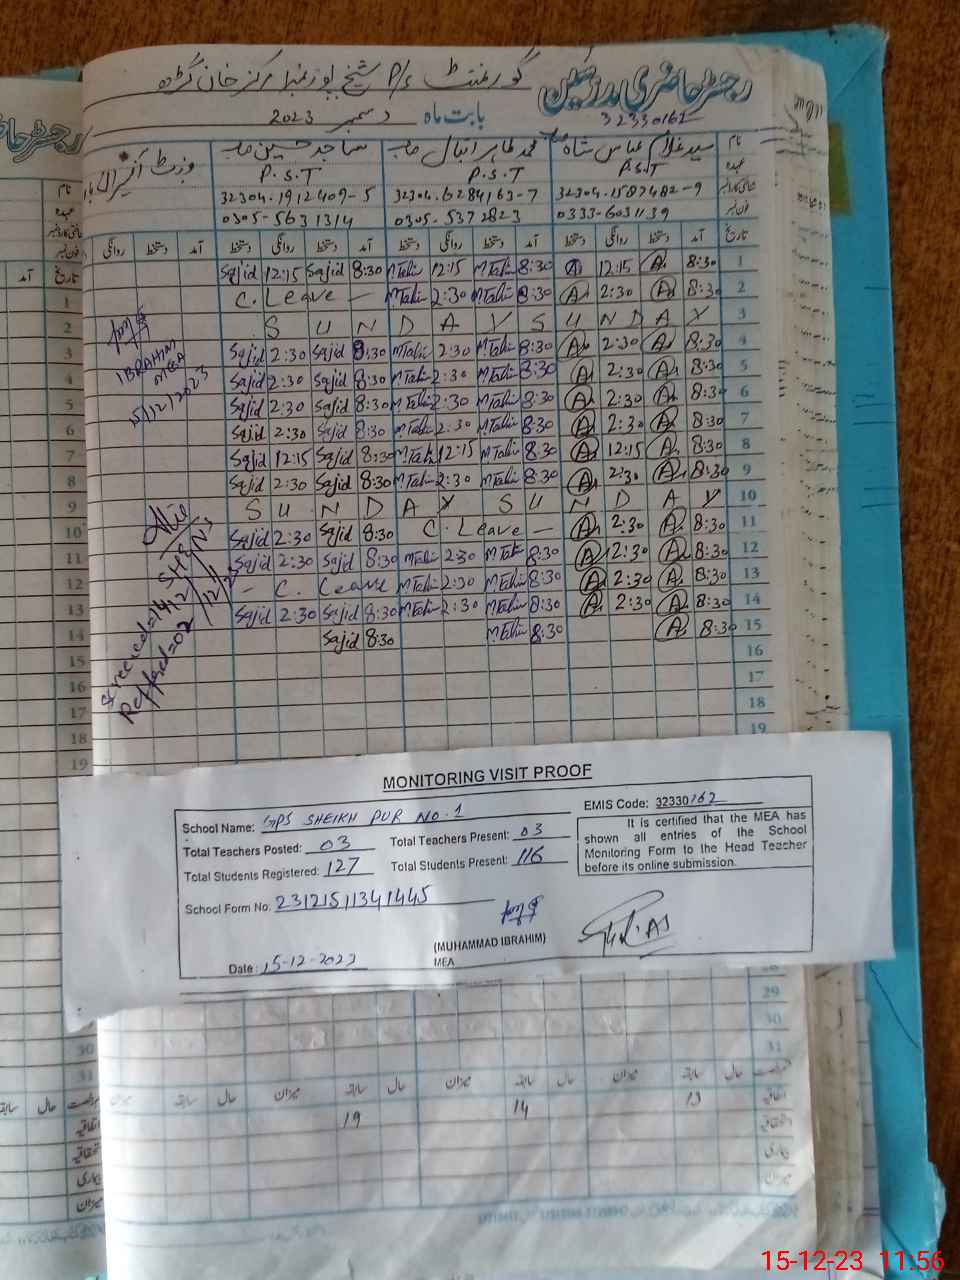 رجسٹر حاضری مدرسین گورنمنٹ P/S شیخ پور نمبر1 مرکز خان گڑھ
32330162
بابت ماہ دسمبر 2023
نام سید غلام عباس شاہ محمد طاہر اقبال ساجد حسین وزٹ آفیسران
عہدہ P.S.T P.S.T P.S.T
شناختی کارڈ نمبر 32304-1587482-9 32304-6284163-7 32304-1912409-5
فون نمبر 0333-6031139 0305-5372823 0305-5631314
تاریخ آمد دستخط روانگی دستخط آمد دستخط روانگی دستخط آمد دستخط روانگی دستخط آمد دستخط روانگی
Sajid 12:15 Sajid 8:30 MTahir 12:15 MTahir 8:30 A 12:15 A 8:30 1
C. Leave — MTahir 2:30 MTahir 8:30 A 2:30 A 8:30 2
S U N D A Y S U N D A Y 3
Sajid 2:30 Sajid 8:30 MTahir 2:30 MTahir 8:30 A 2:30 A 8:30 4
Sajid 2:30 Sajid 8:30 MTahir 2:30 MTahir 8:30 A 2:30 A 8:30 5
Sajid 2:30 Sajid 8:30 MTahir 2:30 MTahir 8:30 A 2:30 A 8:30 6
Sajid 2:30 Sajid 8:30 MTahir 2:30 MTahir 8:30 A 2:30 A 8:30 7
Sajid 12:15 Sajid 8:30 MTahir 12:15 MTahir 8:30 A 12:15 A 8:30 8
Sajid 2:30 Sajid 8:30 MTahir 2:30 MTahir 8:30 A 2:30 A 8:30 9
S U N D A Y S U N D A Y 10
Sajid 2:30 Sajid 8:30 C. Leave — A 2:30 A 8:30 11
Sajid 2:30 Sajid 8:30 MTahir 2:30 MTahir 8:30 A 2:30 A 8:30 12
- C. Leave MTahir 2:30 MTahir 8:30 A 2:30 A 8:30 13
Sajid 2:30 Sajid 8:30 MTahir 2:30 MTahir 8:30 A 2:30 A 8:30 14
Sajid 8:30 MTahir 8:30 A 8:30 15
16
17
18
19
IBRAHIM
MEA
5/12/2023
Screened=14
Reffered=02
MONITORING VISIT PROOF
School Name: GPS SHEIKH PUR NO.1
EMIS Code: 32330162
Total Teachers Posted: 03 Total Teachers Present: 03
Total Students Registered: 127 Total Students Present: 116
School Form No. 23121511341445
It is certified that the MEA has
shown all entries of the School
Monitoring Form to the Head Teacher
before its online submission.
(MUHAMMAD IBRAHIM)
MEA
Date: 15-12-2023
29
30
31
رخصت حال سابقہ میزان حال سابقہ میزان حال سابقہ میزان حال سابقہ میزان
اتفاقیہ 13 14 19
استحقاقیہ
بیماری
میزان
15-12-23 11:56